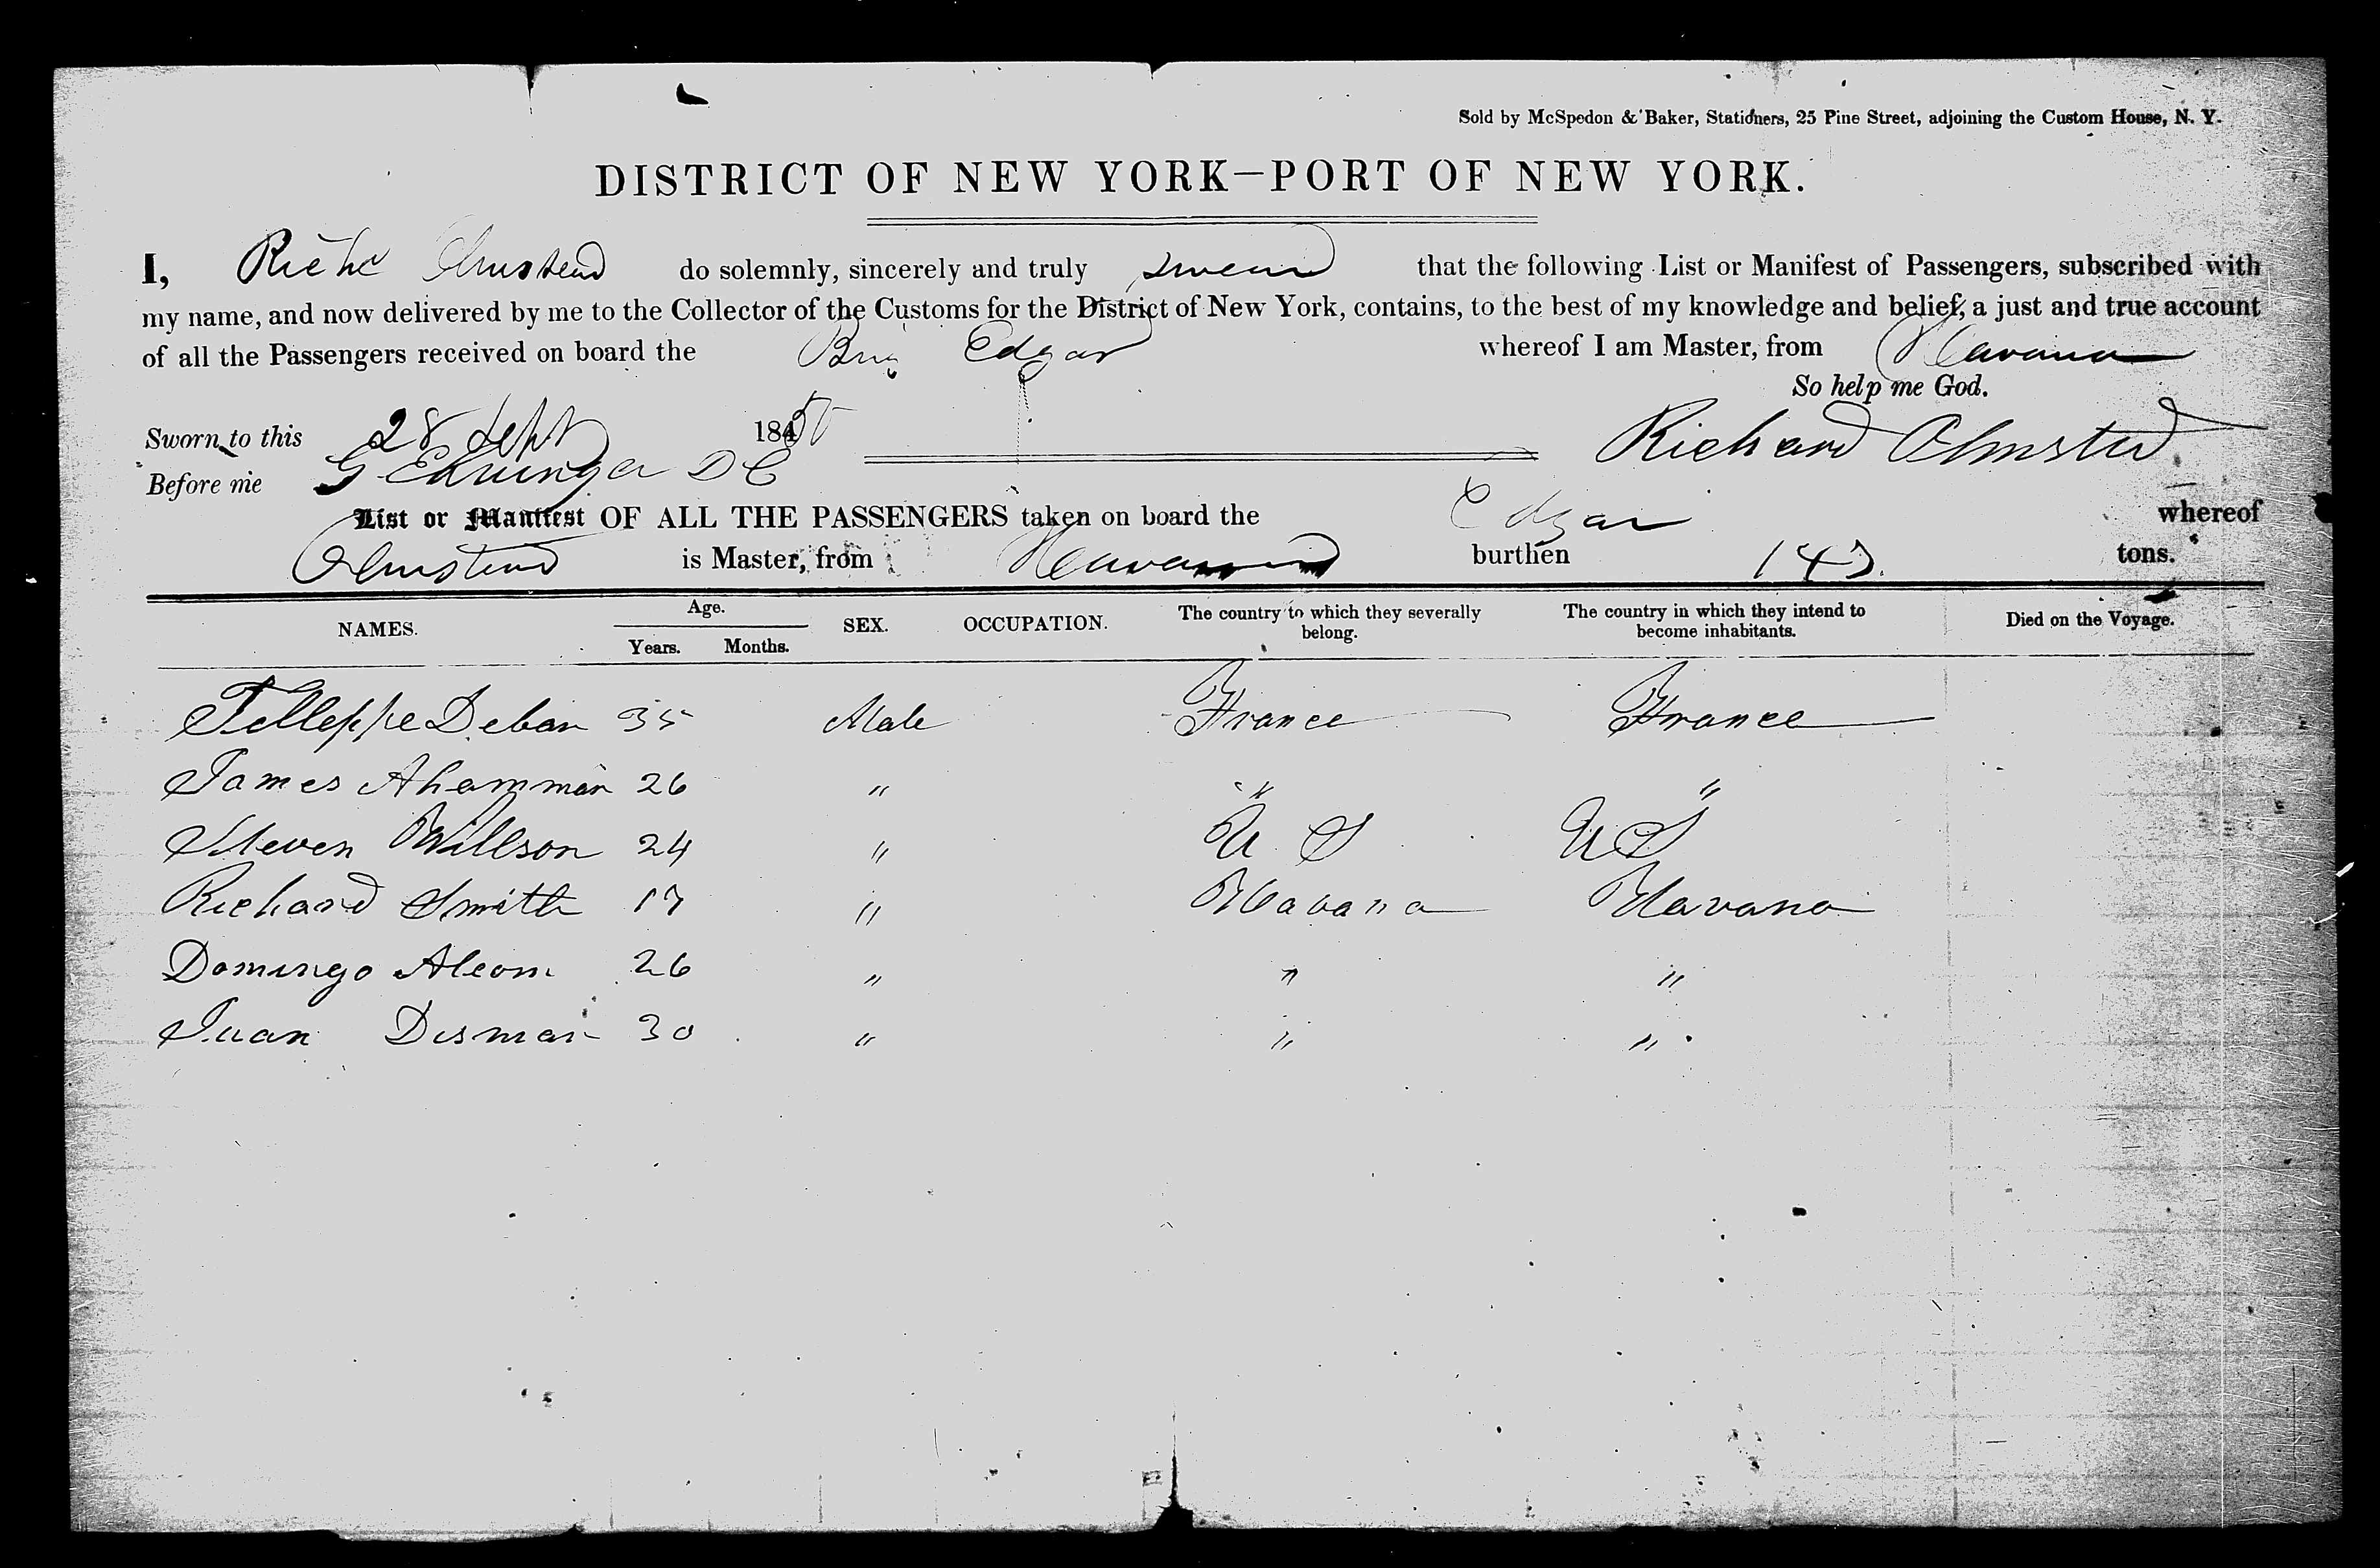 Sold by McSpedon & Baker, Stationers, 25 Pine Street, adjoining the Custom House, N. Y.
DISTRICT OF NEW YORK—PORT OF NEW YORK.
I, Richd Olmstead do solemnly, sincerely and truly swear that the following List or Manifest of Passengers, subscribed with
my name, and now delivered by me to the Collector of the Customs for the District of New York, contains, to the best of my knowledge and belief, a just and true account
of all the Passengers received on board the Brig Edgar whereof I am Master, from Havana
So help me God.
Sworn to this 28 Sept 1850 Richard Olmsted
Before me D C
List or Manifest OF ALL THE PASSENGERS taken on board the Edgar whereof
Olmstead is Master, from Havana burthen 147. tons.
NAMES. Age. Years. Months. SEX. OCCUPATION. The country to which they severally belong. The country in which they intend to become inhabitants. Died on the Voyage.
Felleppe Deban 35 Male France France
James Ahamman 26 " " "
Steven Willson 24 " U S U S
Richard Smith 17 " Havana Havana
Domingo 26 " " "
Juan 30 " " "